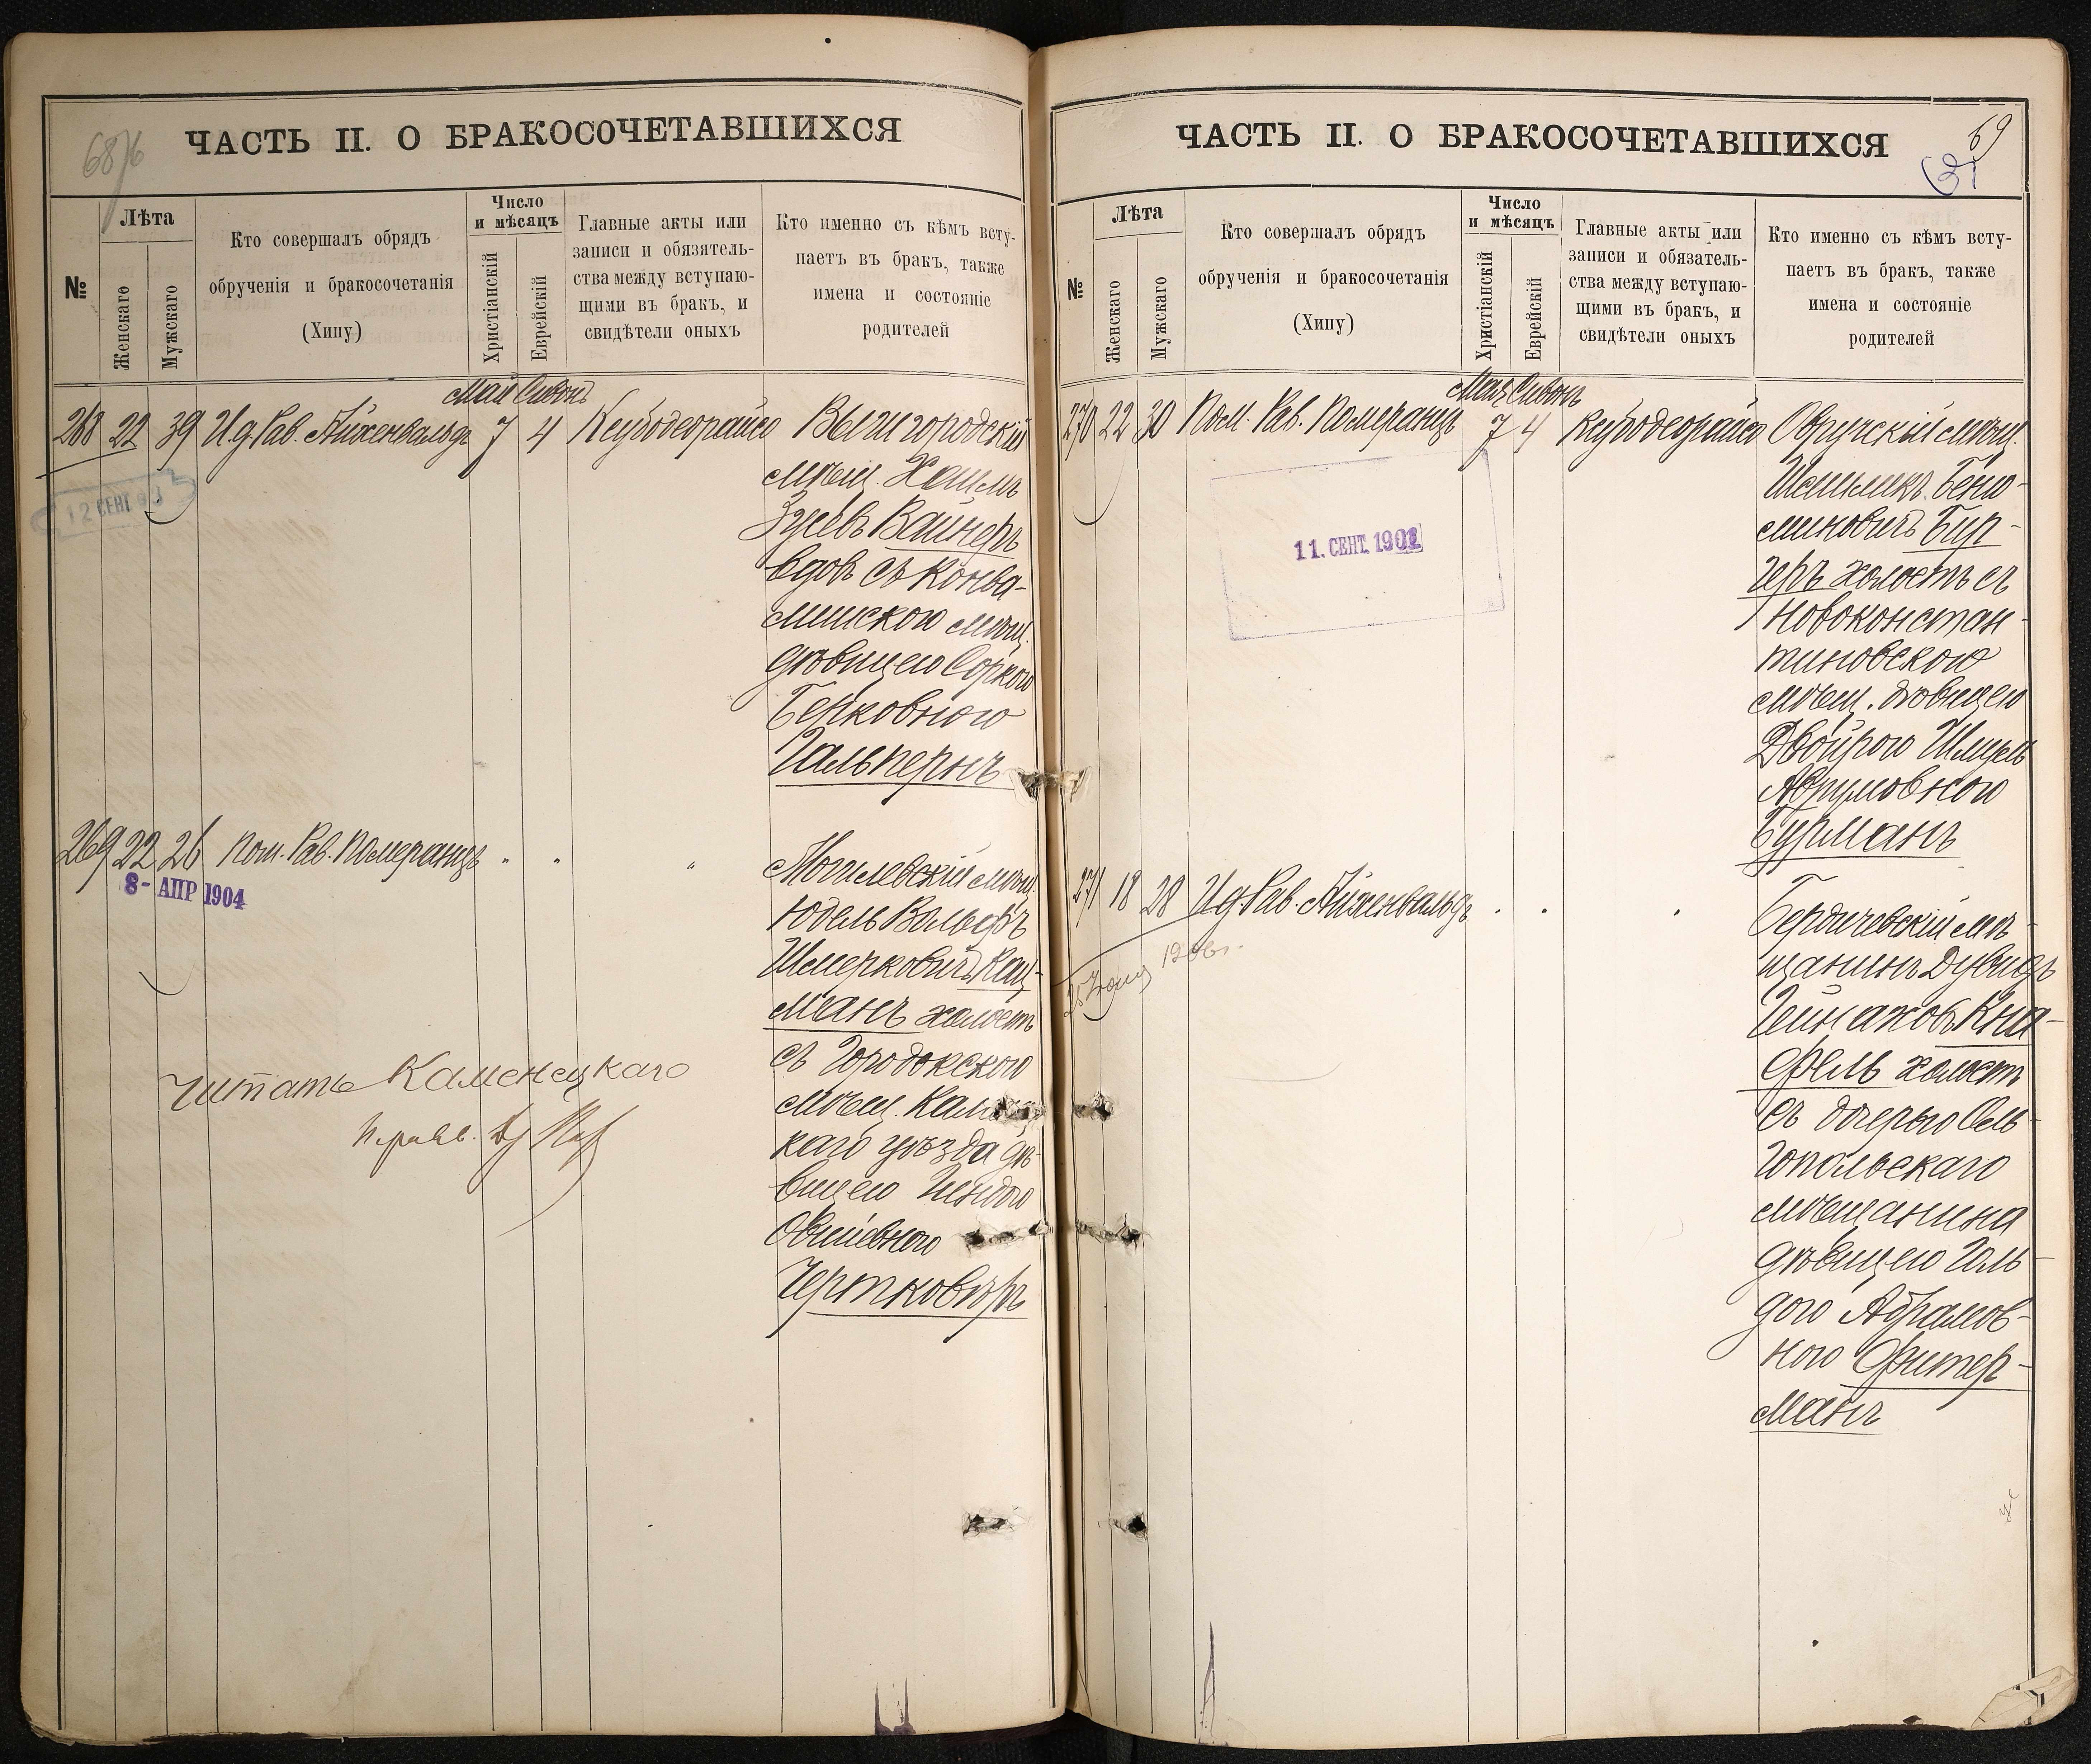 68
ЧАСТЬ II. О БРАКОСОЧЕТАВШИХСЯ
№
Лѣта
Женскаго
Мужскаго
Кто совершалъ обрядъ
обрученія и бракосочетанія
(Хипу)
Число
и мѣсяцъ
Христіанскій
Еврейскій
Главные акты или
записи и обязятель-
ства между вступаю-
щими въ бракъ, и
свидѣтели оныхъ
Кто именно съ кѣмъ всту-
паетъ въ бракъ, также
имена и состояніе
родителей
Май Сивонъ
268 22 39 И.д. Рав. Айхенвальдъ 7 4 Ксубодеорайсо
Вышгородскій
мѣщ. Хаимъ
Зусевъ Вайнеръ
вдов съ Конва-
лишскою мѣщ.
дѣвицею Соркою
Берковною
Гальперинъ
12 СЕНТ
269 22 26 Пом. Рав. Померанцъ " " "
8- АПР 1904
Могилевскій мѣщ.
Юдель Вольфъ
Шмерковичъ Кац-
манъ холостъ
съ Городокскою
мѣщ. Камен
каго уѣзда дѣ-
вицею Гендою
Овшіевною
Чертковѣръ
Читать Каменецкаго
И. рав.
ЧАСТЬ II. О БРАКОСОЧЕТАВШИХСЯ
69
№
Лѣта
Женскаго
Мужскаго
Кто совершалъ обрядъ
обрученія и бракосочетанія
(Хипу)
Число
и мѣсяцъ
Христіанскій
Еврейскій
Главные акты или
записи и обязатель-
ства между вступаю-
щими въ бракъ, и
свидѣтели оныхъ
Кто именно съ кѣмъ всту-
паетъ въ бракъ, также
имена и состояніе
родителей
Мая Сивонъ
270 22 30 Пом. Рав. Померанцъ 7 4 Ксубодеорайсо
Овручскій мѣщ.
Шмиликъ Беню-
миновичъ Бир-
геръ холостъ съ
Новоконстан-
тиновскою
мѣщ. дѣвицею
Двойрою Шмуль
Аврумовною
Бурманъ
11. СЕНТ. 1902
271 18 28 И.д. Рав. Айхенвальдъ " " "
1906 г.
Бердичевскій мѣ-
щанинъ Дувидъ
Гейнаховъ Кна-
фель холостъ
съ дочерью Оль-
гопольскаго
мѣщанина
дѣвицею Голь-
дою Абрамов-
ною Фитер-
манъ